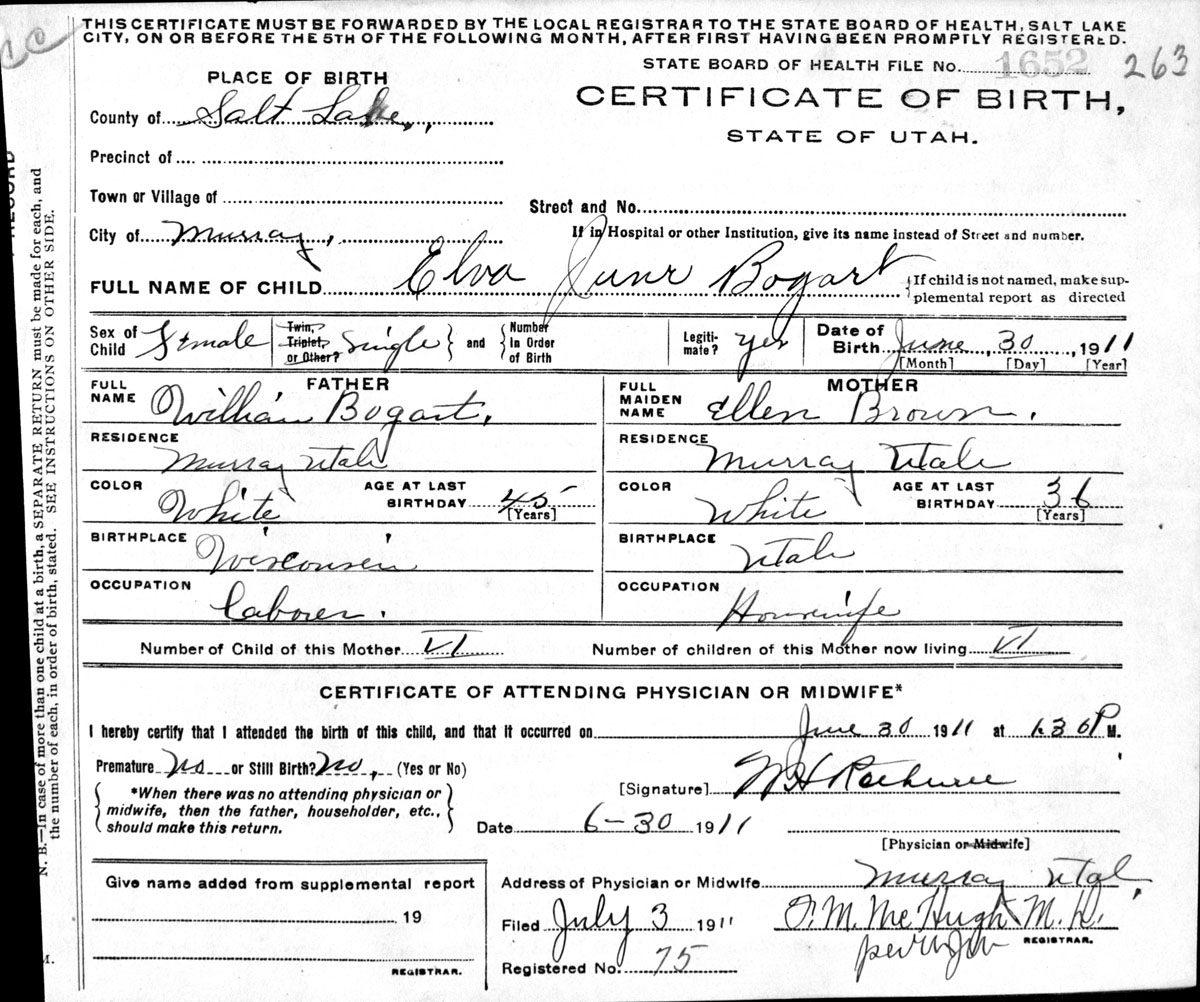 THIS CERTIFICATE MUST BE FORWARDED BY THE LOCAL REGISTRAR TO THE STATE BOARD OF HEALTH, SALT LAKE
CITY, ON OR BEFORE THE 5TH OF THE FOLLOWING MONTH, AFTER FIRST HAVING BEEN PROMPTLY REGISTERED.
STATE BOARD OF HEALTH FILE NO. 1652 263
CERTIFICATE OF BIRTH,
STATE OF UTAH.
PLACE OF BIRTH
County of Salt Lake,
Precinct of
Town or Village of
Street and No.
City of Murray,
If in Hospital or other Institution, give its name instead of Street and number.
FULL NAME OF CHILD Elva June Bogart
{If child is not named, make sup-
plemental report as directed
Sex of Child Female
Twin, Triplet, or Other? Single } and { Number In Order of Birth
Legiti-mate? yes
Date of Birth June, 30, 1911
[Month] [Day] [Year]
FATHER
FULL NAME William Bogart.
RESIDENCE Murray Utah
COLOR White AGE AT LAST BIRTHDAY 45 [Years]
BIRTHPLACE Wisconsin
OCCUPATION Laborer.
MOTHER
FULL MAIDEN NAME Ellen Brown.
RESIDENCE Murray Utah
COLOR White AGE AT LAST BIRTHDAY 36 [Years]
BIRTHPLACE Utah
OCCUPATION Housewife
Number of Child of this Mother VI Number of children of this Mother now living VI
CERTIFICATE OF ATTENDING PHYSICIAN OR MIDWIFE*
I hereby certify that I attended the birth of this child, and that it occurred on June 30 1911 at 1.30 P M.
Premature No or Still Birth? No, (Yes or No)
{ *When there was no attending physician or
midwife, then the father, householder, etc.,
should make this return. }
[Signature] W H
Date 6-30 1911
[Physician or Midwife]
Give name added from supplemental report
19
REGISTRAR.
Address of Physician or Midwife Murray Utah,
Filed July 3 1911 T. M. McHugh M. D.
REGISTRAR.
Registered No. 75
N. B.—In case of more than one child at a birth, a SEPARATE RETURN must be made for each, and
the number of each, in order of birth, stated. SEE INSTRUCTIONS ON OTHER SIDE.
RECORD
M.